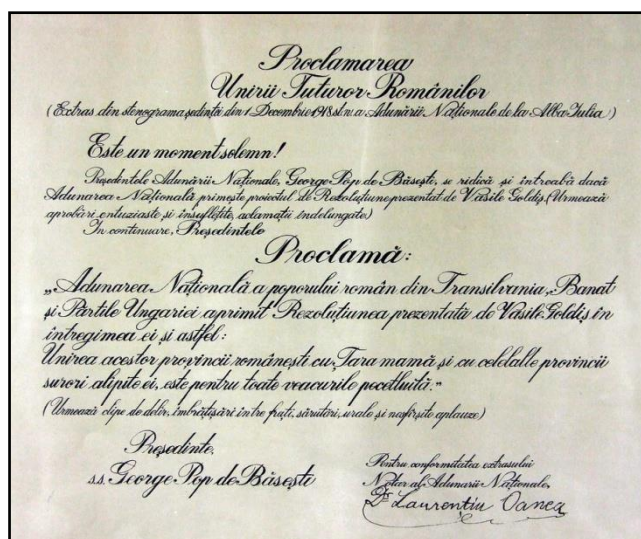 Proclamarea
Unirii Tuturor Românilor
(Extras din stenograma ședinței din 1 Decembrie 1918 st.n. a Adunării Naționale de la Alba Iulia)
Este un moment solemn!
Președintele Adunării Naționale, George Pop de Băsești, se ridică și întreabă dacă
Adunarea Națională primește proiectul de Rezoluțiune prezentat de Vasile Goldiș. (Urmează
aprobări entuziaste și însuflețite, aclamații îndelungate)
In continuare, Președintele
Proclamă:
„Adunarea Națională a poporului român din Transilvania, Banat
și Părțile Ungariei a primit Rezoluțiunea prezentată de Vasile Goldiș în
întregimea ei și astfel:
Unirea acestor provincii românești cu Țara mamă și cu celelalte provincii
surori alipite ei, este pentru toate veacurile pecetluită.”
(Urmează clipe de delir, îmbrățișări între frați, sărutări, urale și nesfîrșite aplauze)
Președinte,
ss. George Pop de Băsești
Pentru conformitatea extrasului
Notar al Adunării Naționale,
Dr Laurentiu Oanea